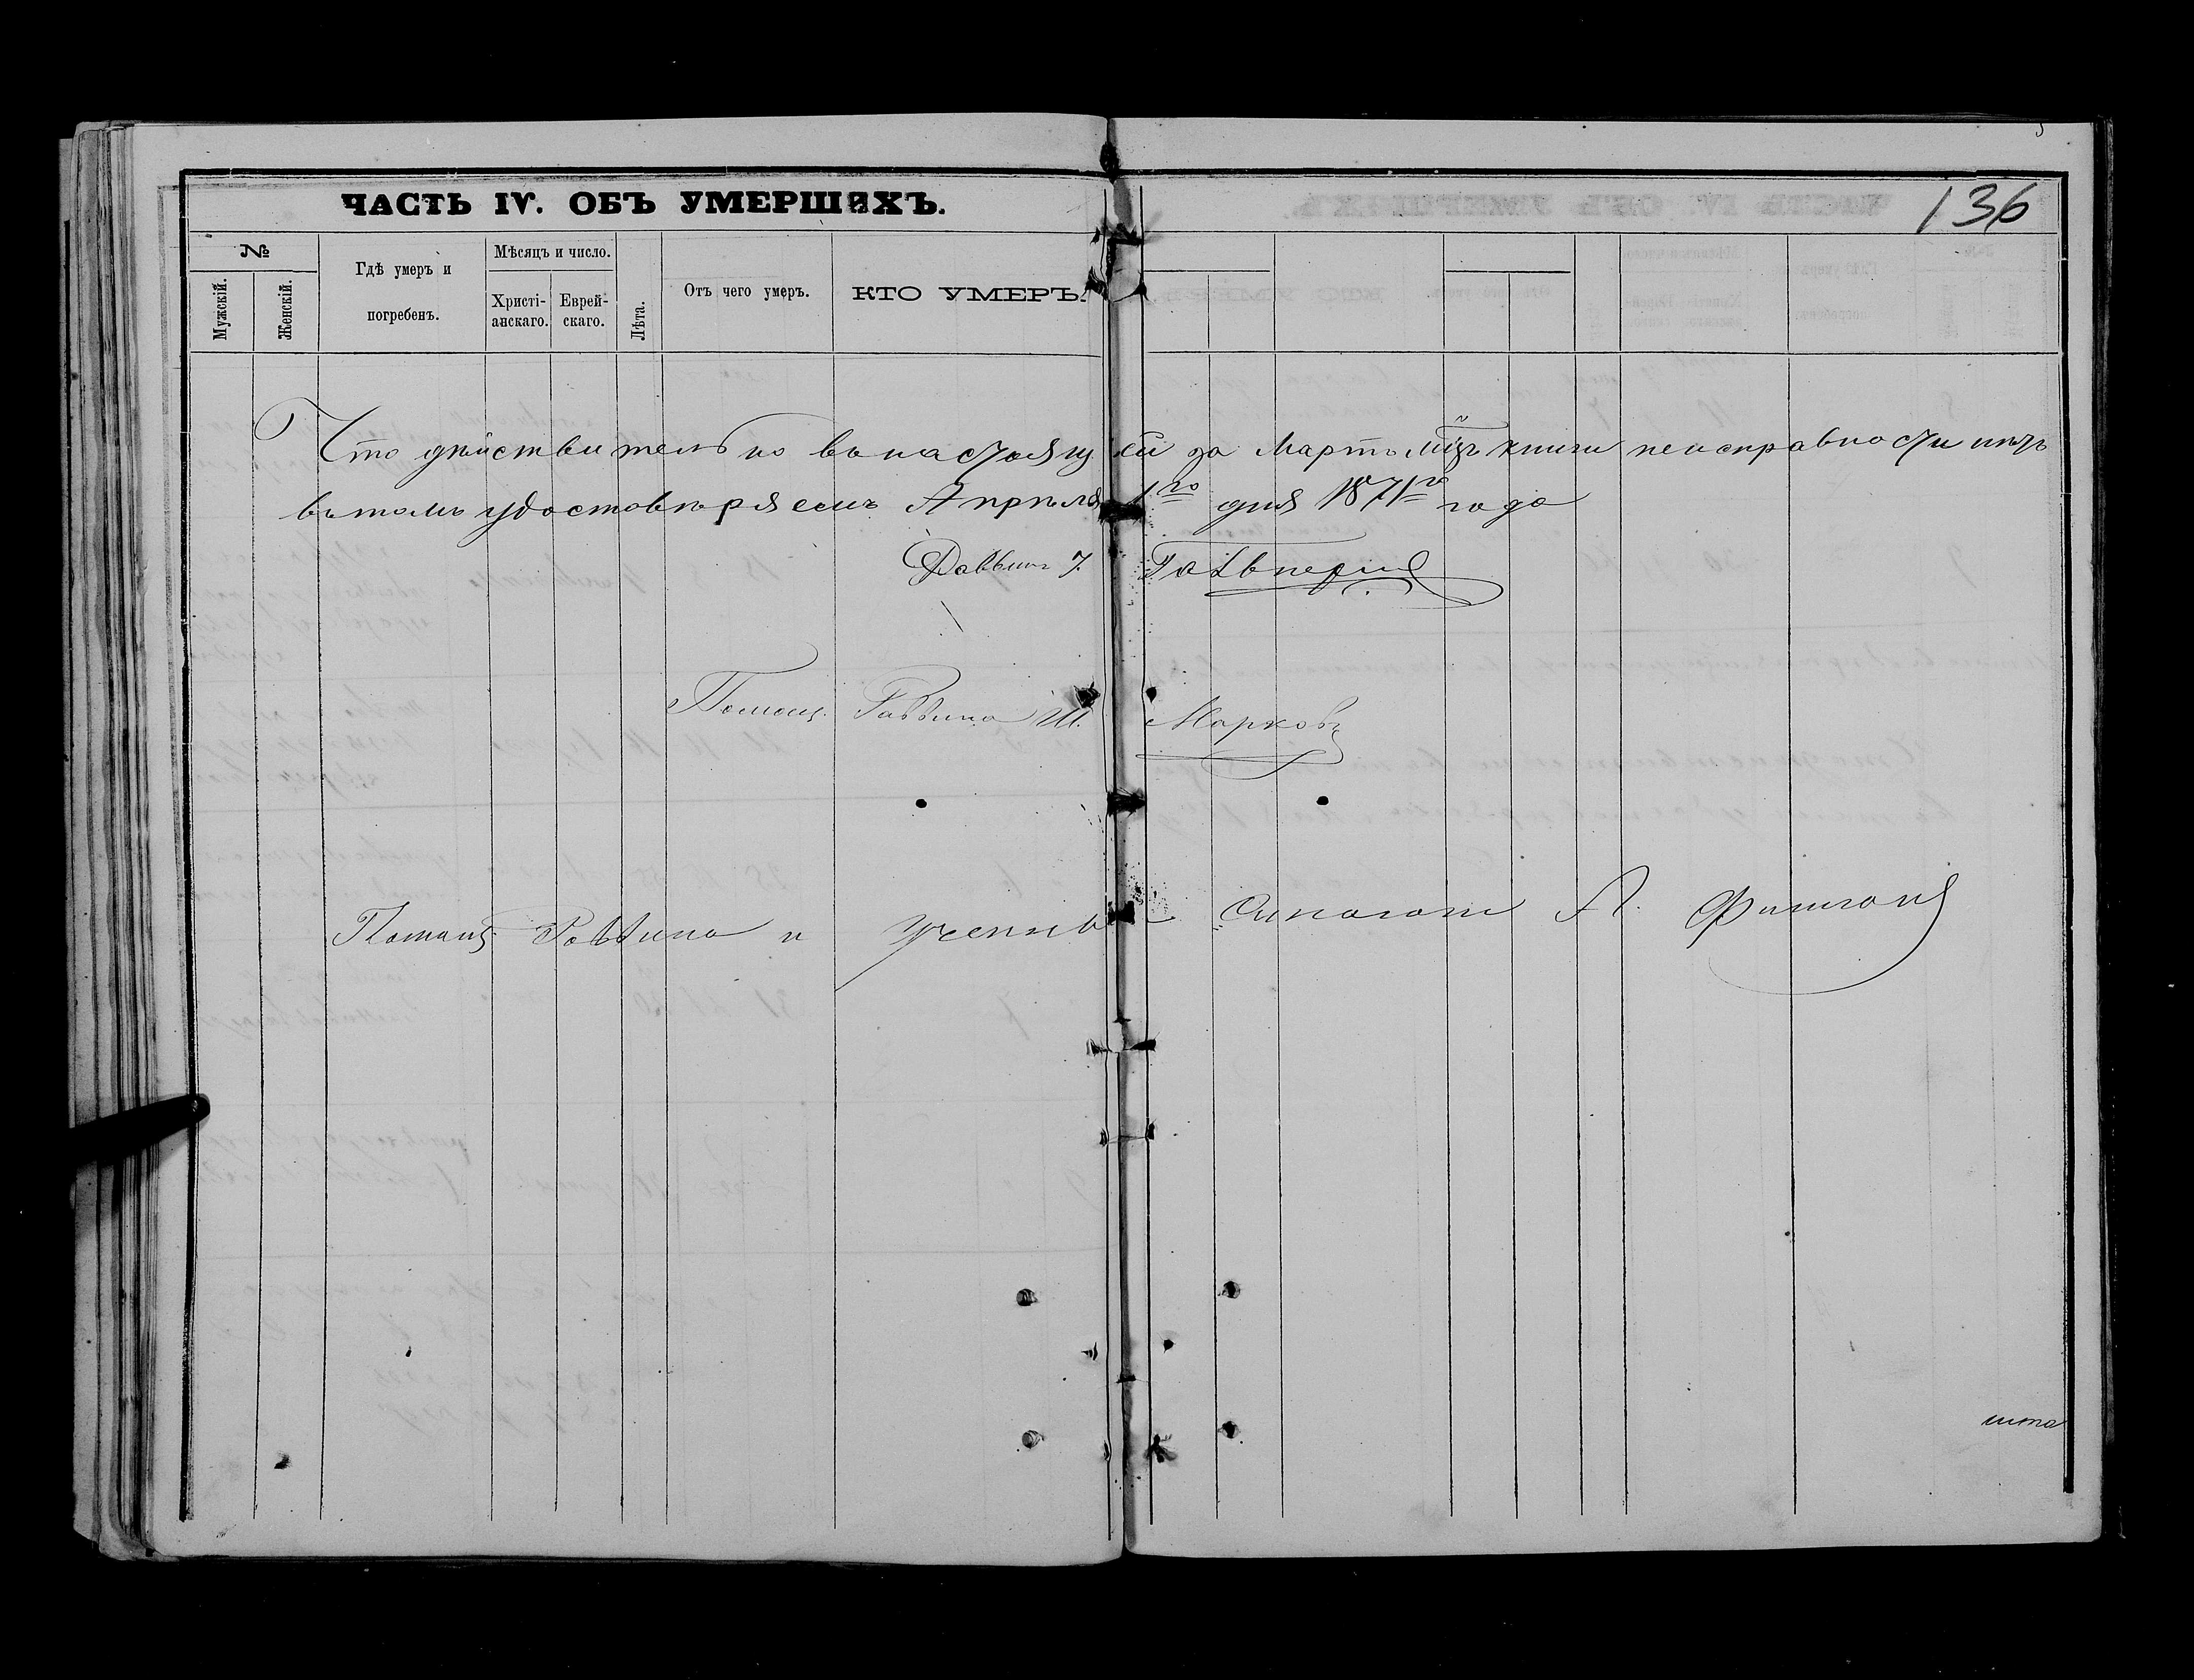 ЧАСТЬ IV. ОБЪ УМЕРШИХЪ.
136
№
Мужскій.
Женскій.
Гдѣ умеръ и
погребенъ.
Мѣсяцъ и число.
Христі-
анскаго.
Еврей-
скаго.
Лѣта.
Отъ чего умеръ.
КТО УМЕРЪ.
Что дѣйствительно въ настоящей за Мартъ мцъ книги неисправности нѣтъ
въ томъ удостовѣряемъ Апрѣля 1го дня 1871го года
Раввинъ
Помощ. Раввина Ш. Марковъ
Помощ. Раввина и Ученый Синагоги А. Фишгонъ